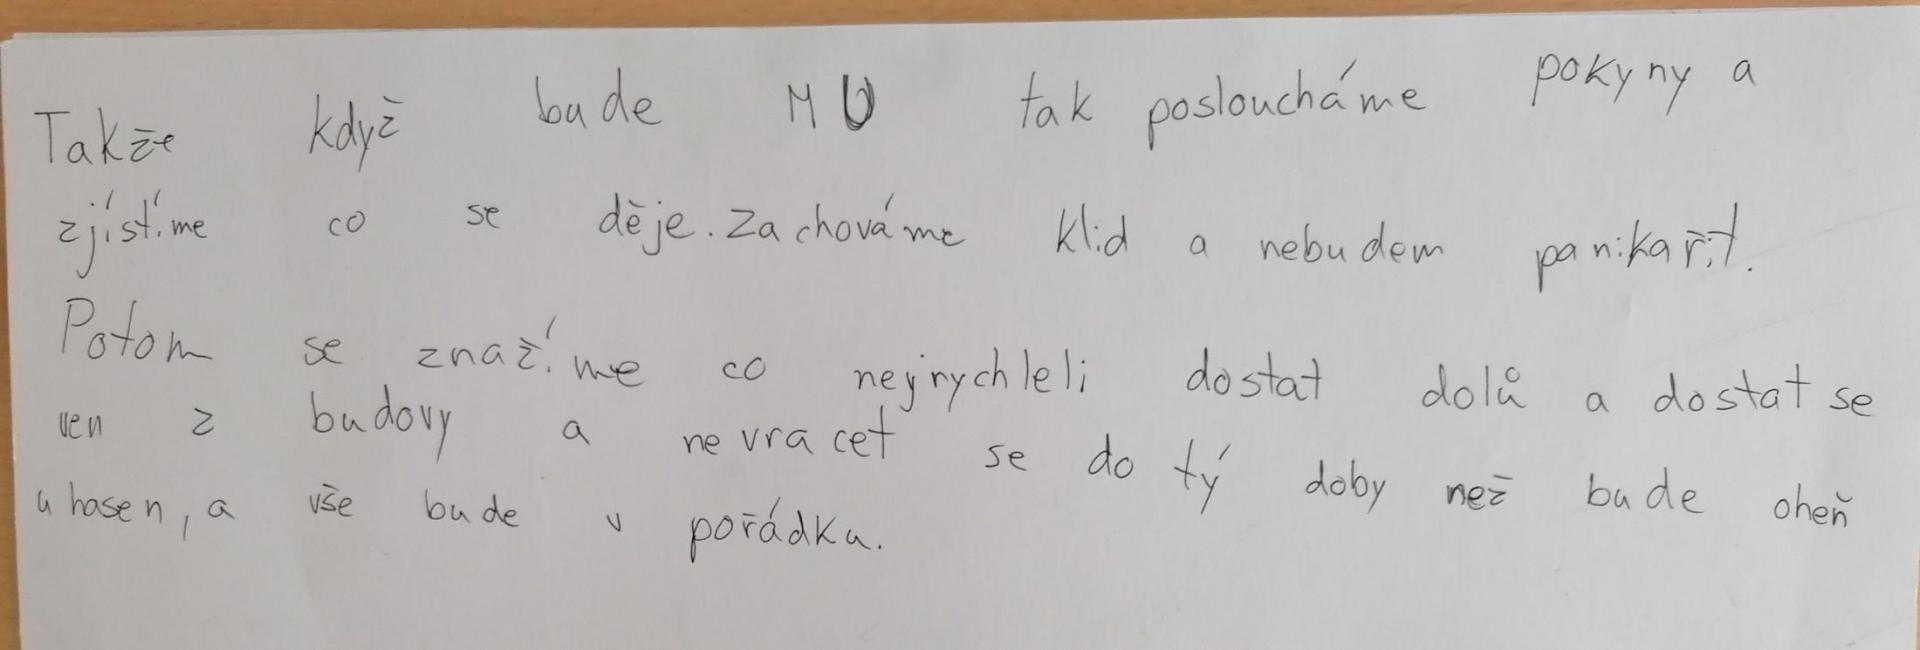 Takže když bude MU tak posloucháme pokyny a
zjístíme co se děje. Zachováme klid a nebudem panikařit.
Potom se znažíme co nejrychleli dostat dolů a dostat se
ven z budovy a nevracet se do tý doby než bude oheň
uhasen, a vše bude v pořádku.